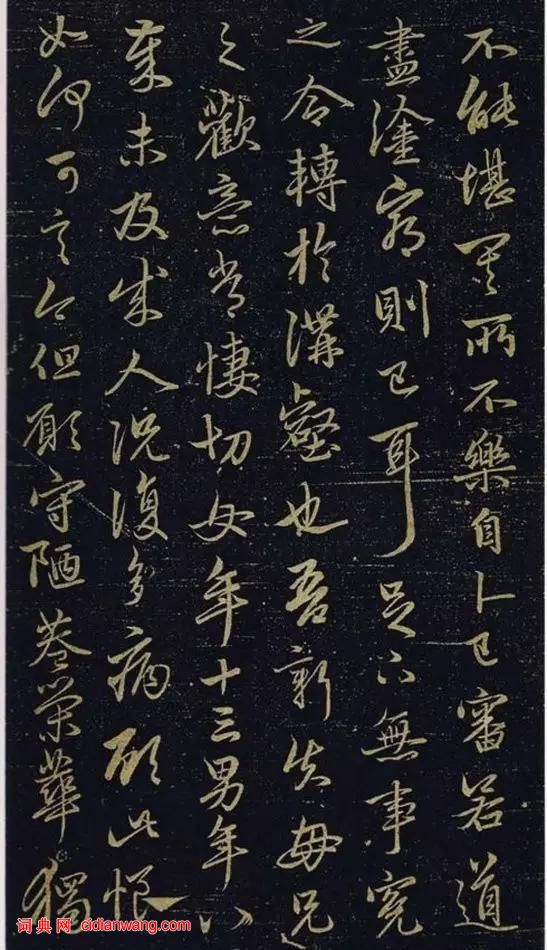 不能堪其所不樂自卜已審若道
盡塗窮則已耳足下無事冤
之令轉於溝壑也吾新失母兄
之歡意常悽切女年十三男年八
歲未及成人況復多病顧此恨
如何可言今但願守陋巷榮華獨
词典网 cidianwang.com